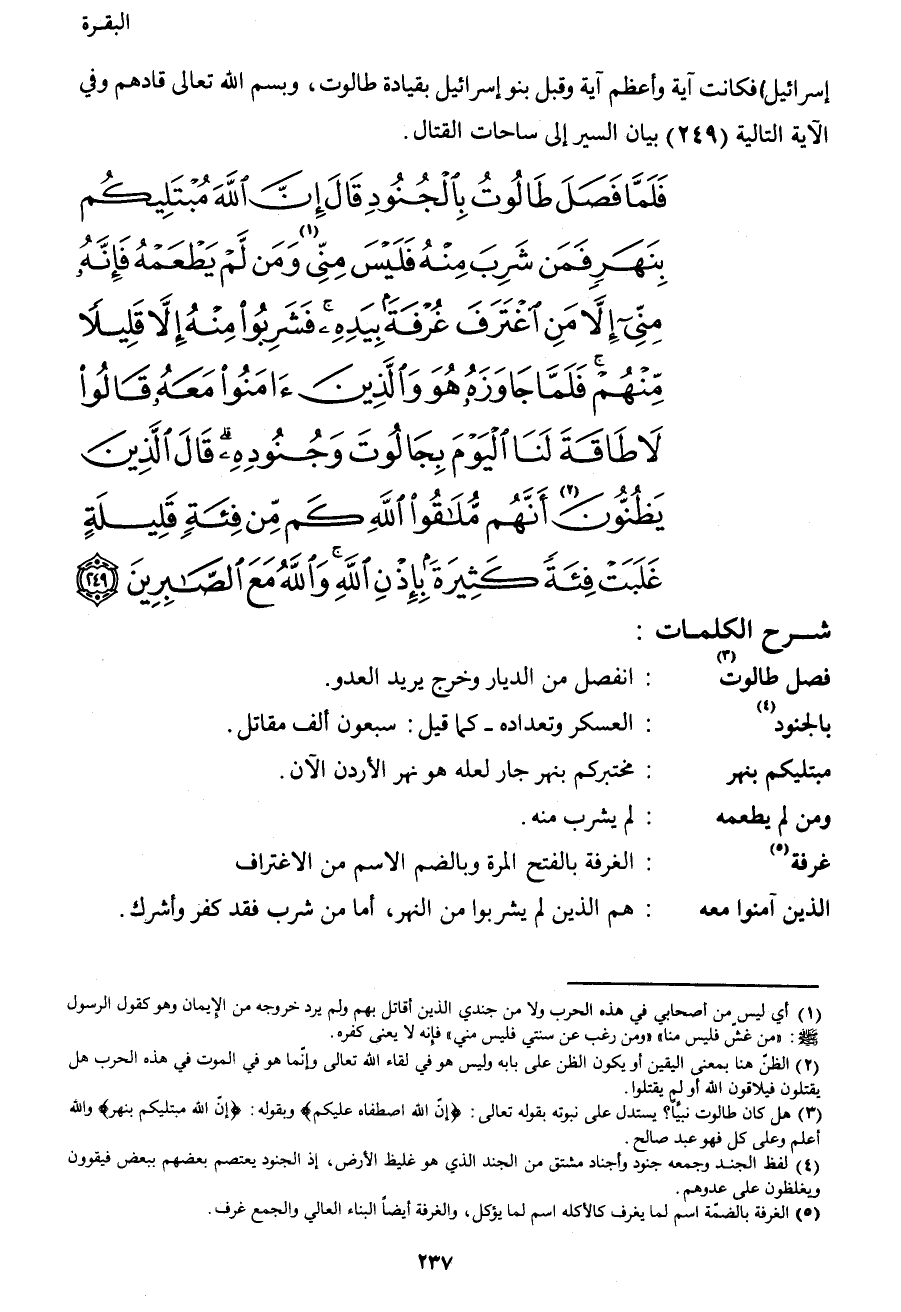 البقـرة
إسرائيل) فكانت آية وأعظم آية وقبل بنو إسرائيل بقيادة طالوت، وبسم الله تعالى قادهم وفي
الآية التالية (٢٤٩) بيان السير إلى ساحات القتال.
فَلَمَّا فَصَلَ طَالُوتُ بِٱلْجُنُودِ قَالَ إِنَّ ٱللَّهَ مُبْتَلِيكُم
بِنَهَرٍ فَمَن شَرِبَ مِنْهُ فَلَيْسَ مِنِّي(١) وَمَن لَّمْ يَطْعَمْهُ فَإِنَّهُۥ
مِنِّيٓ إِلَّا مَنِ ٱغْتَرَفَ غُرْفَةَۢ بِيَدِهِۦۚ فَشَرِبُوا۟ مِنْهُ إِلَّا قَلِيلًا
مِّنْهُمْۚ فَلَمَّا جَاوَزَهُۥ هُوَ وَٱلَّذِينَ ءَامَنُوا۟ مَعَهُۥ قَالُوا۟
لَا طَاقَةَ لَنَا ٱلْيَوْمَ بِجَالُوتَ وَجُنُودِهِۦۚ قَالَ ٱلَّذِينَ
يَظُنُّونَ(٢) أَنَّهُم مُّلَٰقُوا۟ ٱللَّهِ كَم مِّن فِئَةٍ قَلِيلَةٍ
غَلَبَتْ فِئَةً كَثِيرَةَۢ بِإِذْنِ ٱللَّهِۗ وَٱللَّهُ مَعَ ٱلصَّٰبِرِينَ ٢٤٩
شـرح الكلمـات :
فصل طالوت(٣) : انفصل من الديار وخرج يريد العدو.
بالجنود(٤) : العسكر وتعداده ـ كما قيل : سبعون ألف مقاتل.
مبتليكم بنهر : مختبركم بنهر جار لعله هو نهر الأردن الآن.
ومن لم يطعمه : لم يشرب منه.
غرفة(٥) : الغرفة بالفتح المرة وبالضم الاسم من الاغتراف
الذين آمنوا معه : هم الذين لم يشربوا من النهر، أما من شرب فقد كفر وأشرك.
(١) أي ليس من أصحابي في هذه الحرب ولا من جندي الذين أقاتل بهم ولم يرد خروجه من الإيمان وهو كقول الرسول
ﷺ : «من غشّ فليس منا» «ومن رغب عن سنتي فليس مني» فإنه لا يعنى كفره.
(٢) الظنّ هنا بمعنى اليقين أو يكون الظن على بابه وليس هو في لقاء الله تعالى وإنّما هو في الموت في هذه الحرب هل
يقتلون فيلاقون الله أو لم يقتلوا.
(٣) هل كان طالوت نبيّاً؟ يستدل على نبوته بقوله تعالى : ﴿إنّ الله اصطفاه عليكم﴾ وبقوله : ﴿إنّ الله مبتليكم بنهر﴾ والله
أعلم وعلى كل فهو عبد صالح.
(٤) لفظ الجنـد وجمعه جنود وأجناد مشتق من الجند الذي هو غليظ الأرض، إذ الجنود يعتصم بعضهم ببعض فيقوون
ويغلظون على عدوهم.
(٥) الغرفة بالضمّة اسم لما يغرف كالأكله اسم لما يؤكل، والغرفة أيضاً البناء العالي والجمع غرف.
٢٣٧